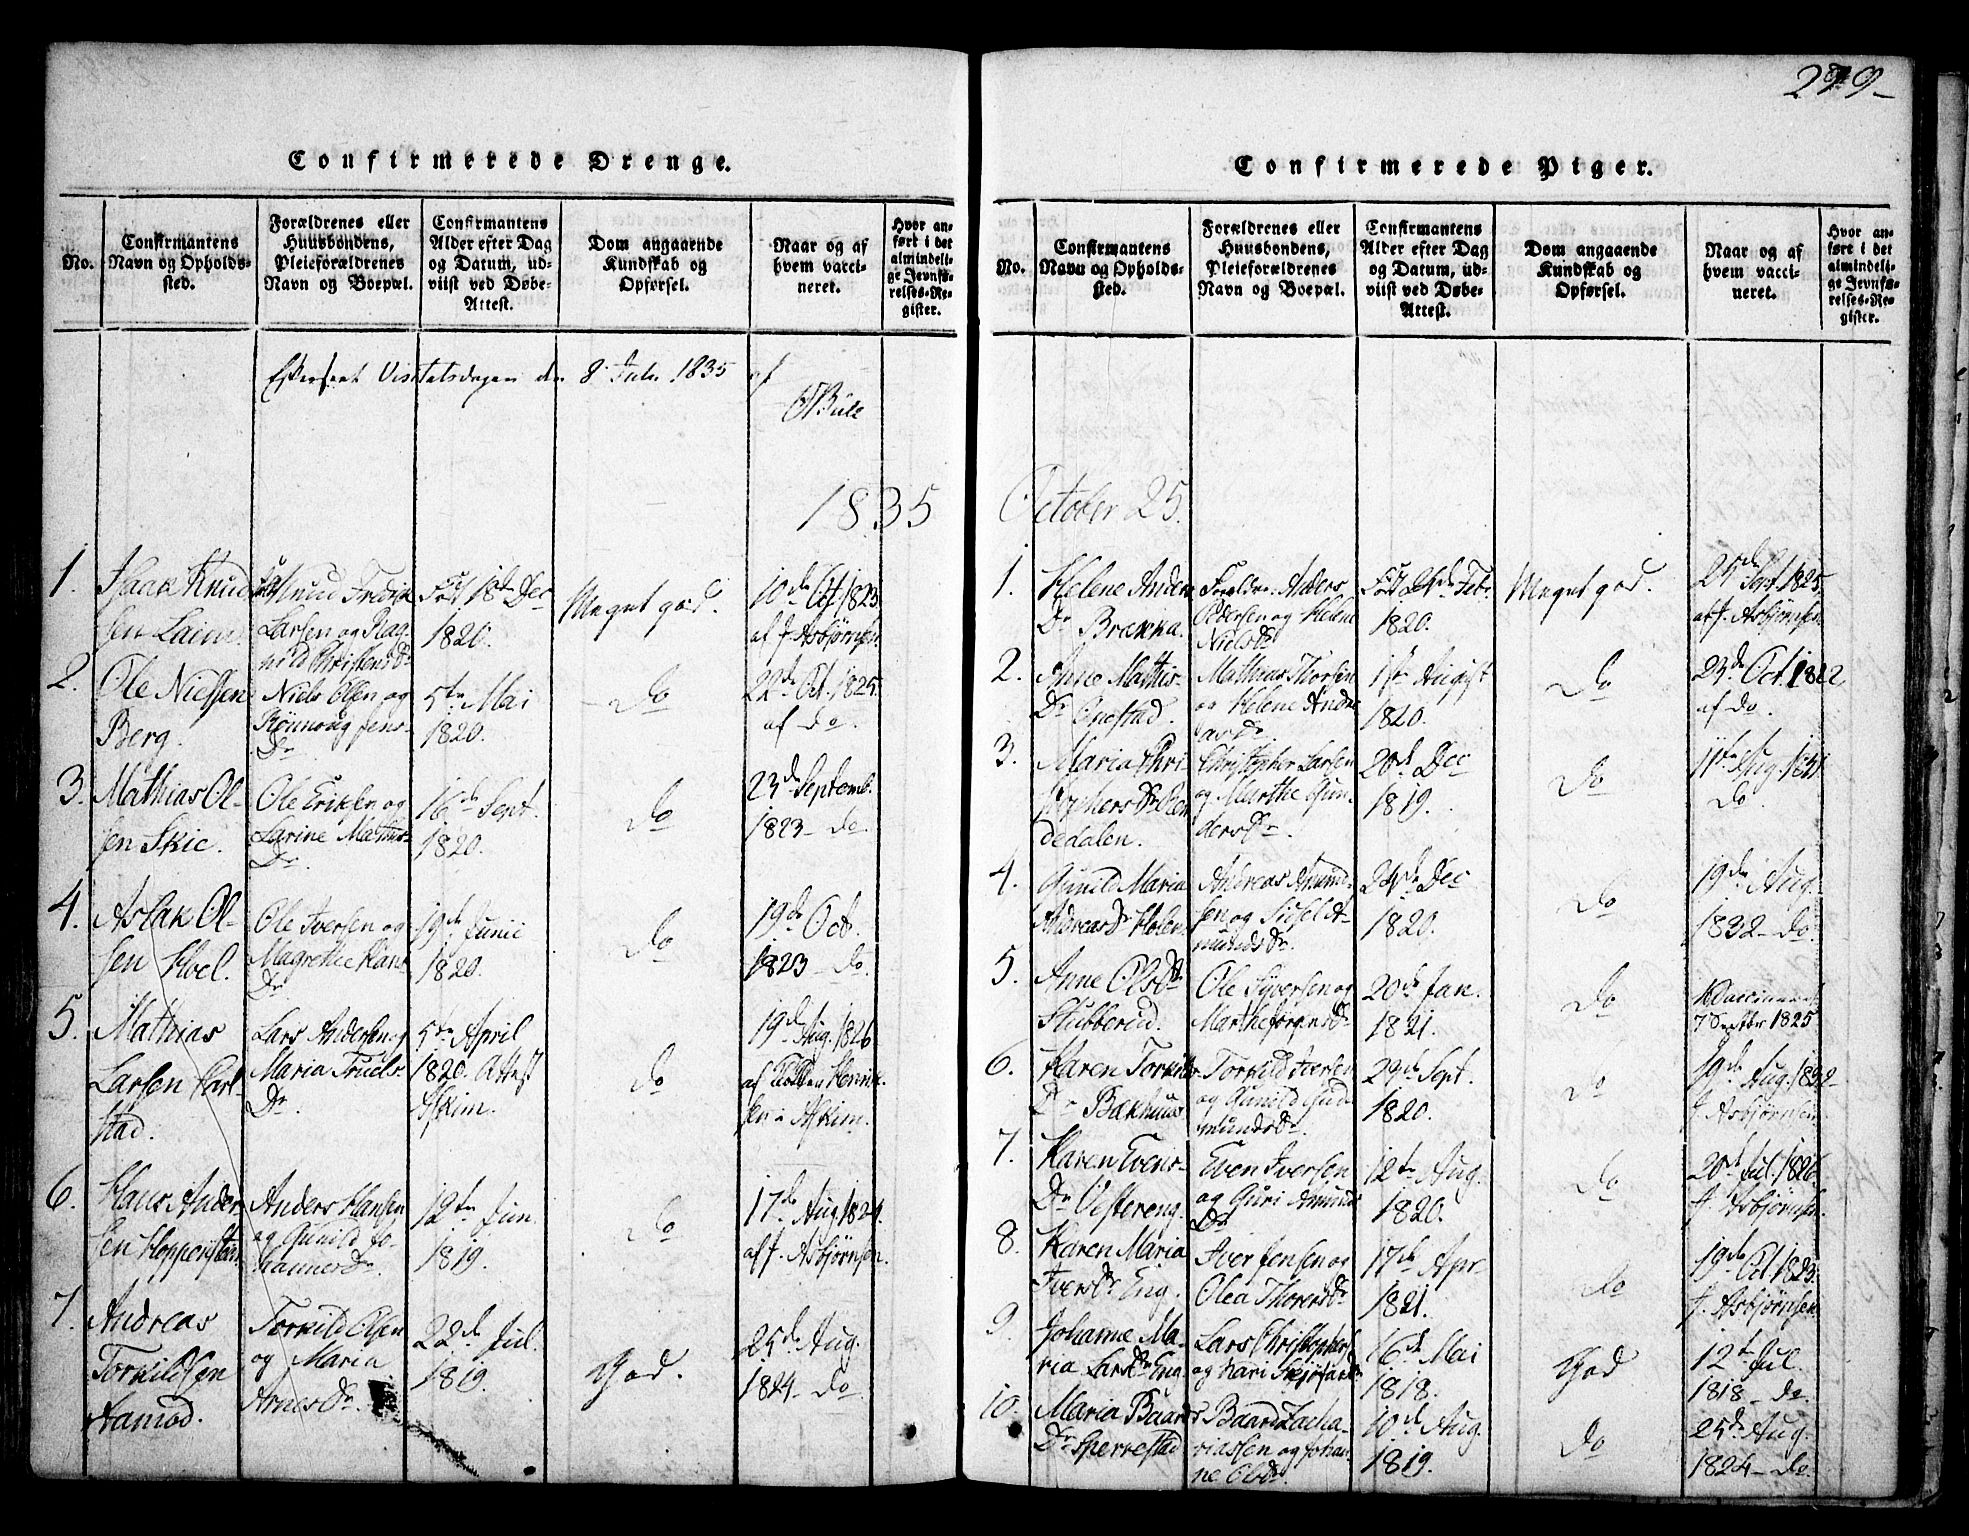 279-
Confirmerede Drenge.
No.
Confirmantens Navn og Opholds-sted.
Forældrenes eller Huusbondens, Pleieforældrenes Navn og Boepæl.
Confirmantens Alder efter Dag og Datum, ud-viist ved Døbe-Attest.
Dom angaaende Kundskab og Opførsel.
Naar og af hvem vacci-neret.
Hvor an-ført i det almindeli-ge Jevnfø-relses-Re-gister.
Visitatsdagen den 8 Juli 1835 af
Büle
1835
1.
Isaak Knud
sen Laim
Knud Fredrik
Larsen og Rag-
nild Christensdr
Født 18de Dec
1820.
Meget god.
10de Oct. 1823
af J. Asbjørnsen
2.
Ole Nielsen
Berg.
Niels Olsen og
Rønnoug Jens-
Dr
5te Mai
1820.
Do
22de Oct. 1825
af do.
3.
Mathias Ol-
sen Skie.
Ole Eriksen og
Larine Mathis-
Dr
16de Sept.
1820.
Do
23de Septemb.
1823 - do.
4.
Aslak Ol-
sen Hoel.
Ole Iversen og
Magrethe Hans
Dr
19de Junii
1820.
Do
19de Oct.
1823 - do.
5.
Mathias
Larsen Karl-
stad.
Lars Andersen og
Maria Truels-
Dr
5te April
1820. Attest
Askim.
Do
19de Aug. 1826
af Henrik-
sen i Askim.
6.
Hans Ander-
sen Hopperstad
Anders Hansen
og Gunild Jo-
hannesdr
12te Jun.
1819.
Do
17de Aug. 1824.
af J. Asbjørnsen.
7.
Andreas
Torkildsen
Aamod.
Torkild Olsen
og Maria
Arnesdr
22de Jul.
1819.
God.
25de Aug.
1824 - do
Confirmerede Piger.
No.
Confirmantens Navn og Opholds-sted.
Forældrenes eller Huusbondens, Pleieforældrenes Navn og Boepæl.
Confirmantens Alder efter Dag og Datum, ud-viist ved Døbe-Attest.
Dom angaaende Kundskab og Opførsel.
Naar og af hvem vacci-neret.
Hvor an-ført i det almindeli-ge Jevnfø-relses-Re-gister.
October 25.
1.
Helene Anders
Dr Brækka.
Forældre Anders
Pedersen og Helene
Nielsdr
Født 24de Febr.
1820.
Meget god.
25de Sept. 1825.
af J. Asbjørnsen
2.
Anne Mathis-
Dr Onestad.
Mathias Thorsen
og Helene Andre
asdr
1ste August
1820.
Do
23de Oct. 1822
af do.
3.
Maria Chri
stophersdr Ren
dedalen.
Christopher Larsen
og Marthe Gun-
dersdr
20de Dec
1819.
Do
11te Aug.
Do
4.
Gunild Maria
Andreasdr Holen
Andreas Amund-
sen og Sissel A-
mundsdr
24de Dec
1820.
Do
19de Aug.
1832 - do.
5.
Anne Olsdr
Stubberud.
Ole Syversen og
Marthe Jørgensdr
20de Jan.
1821.
Do
Vaccineret
7 Septbr. 1825
6.
Karen Torkils-
Dr Bakhuus
Torkild Iversen
og Gunild Gud-
mundsdr
29de Sept.
1820.
Do
19de Aug. 1832-
J. Asbjørnsen.
7.
Karen Evens-
Dr Vestereng.
Even Iversen
og Guri Amunds
Dr
12te Aug.
1820.
Do
20de Jul. 1826
J. Asbjørnsen.
8.
Karen Maria
Iversdr Eng.
Iver Jensen og
Olea Thoresdr
17de Apr
1821.
Do
19de Oct 1823.
J. Asbjørnsen
9.
Johanne Ma-
ria Larsdr Eng
Lars Christophers
og Kari
16de Mai
1818.
God
12te Jul.
1818 - do
10.
Maria Baards
Dr Sperrestad
Baard Zacha-
riassen og Johan-
ne Olsdr.
10de Aug.
1819.
Do
25de Aug.
1824 - do.